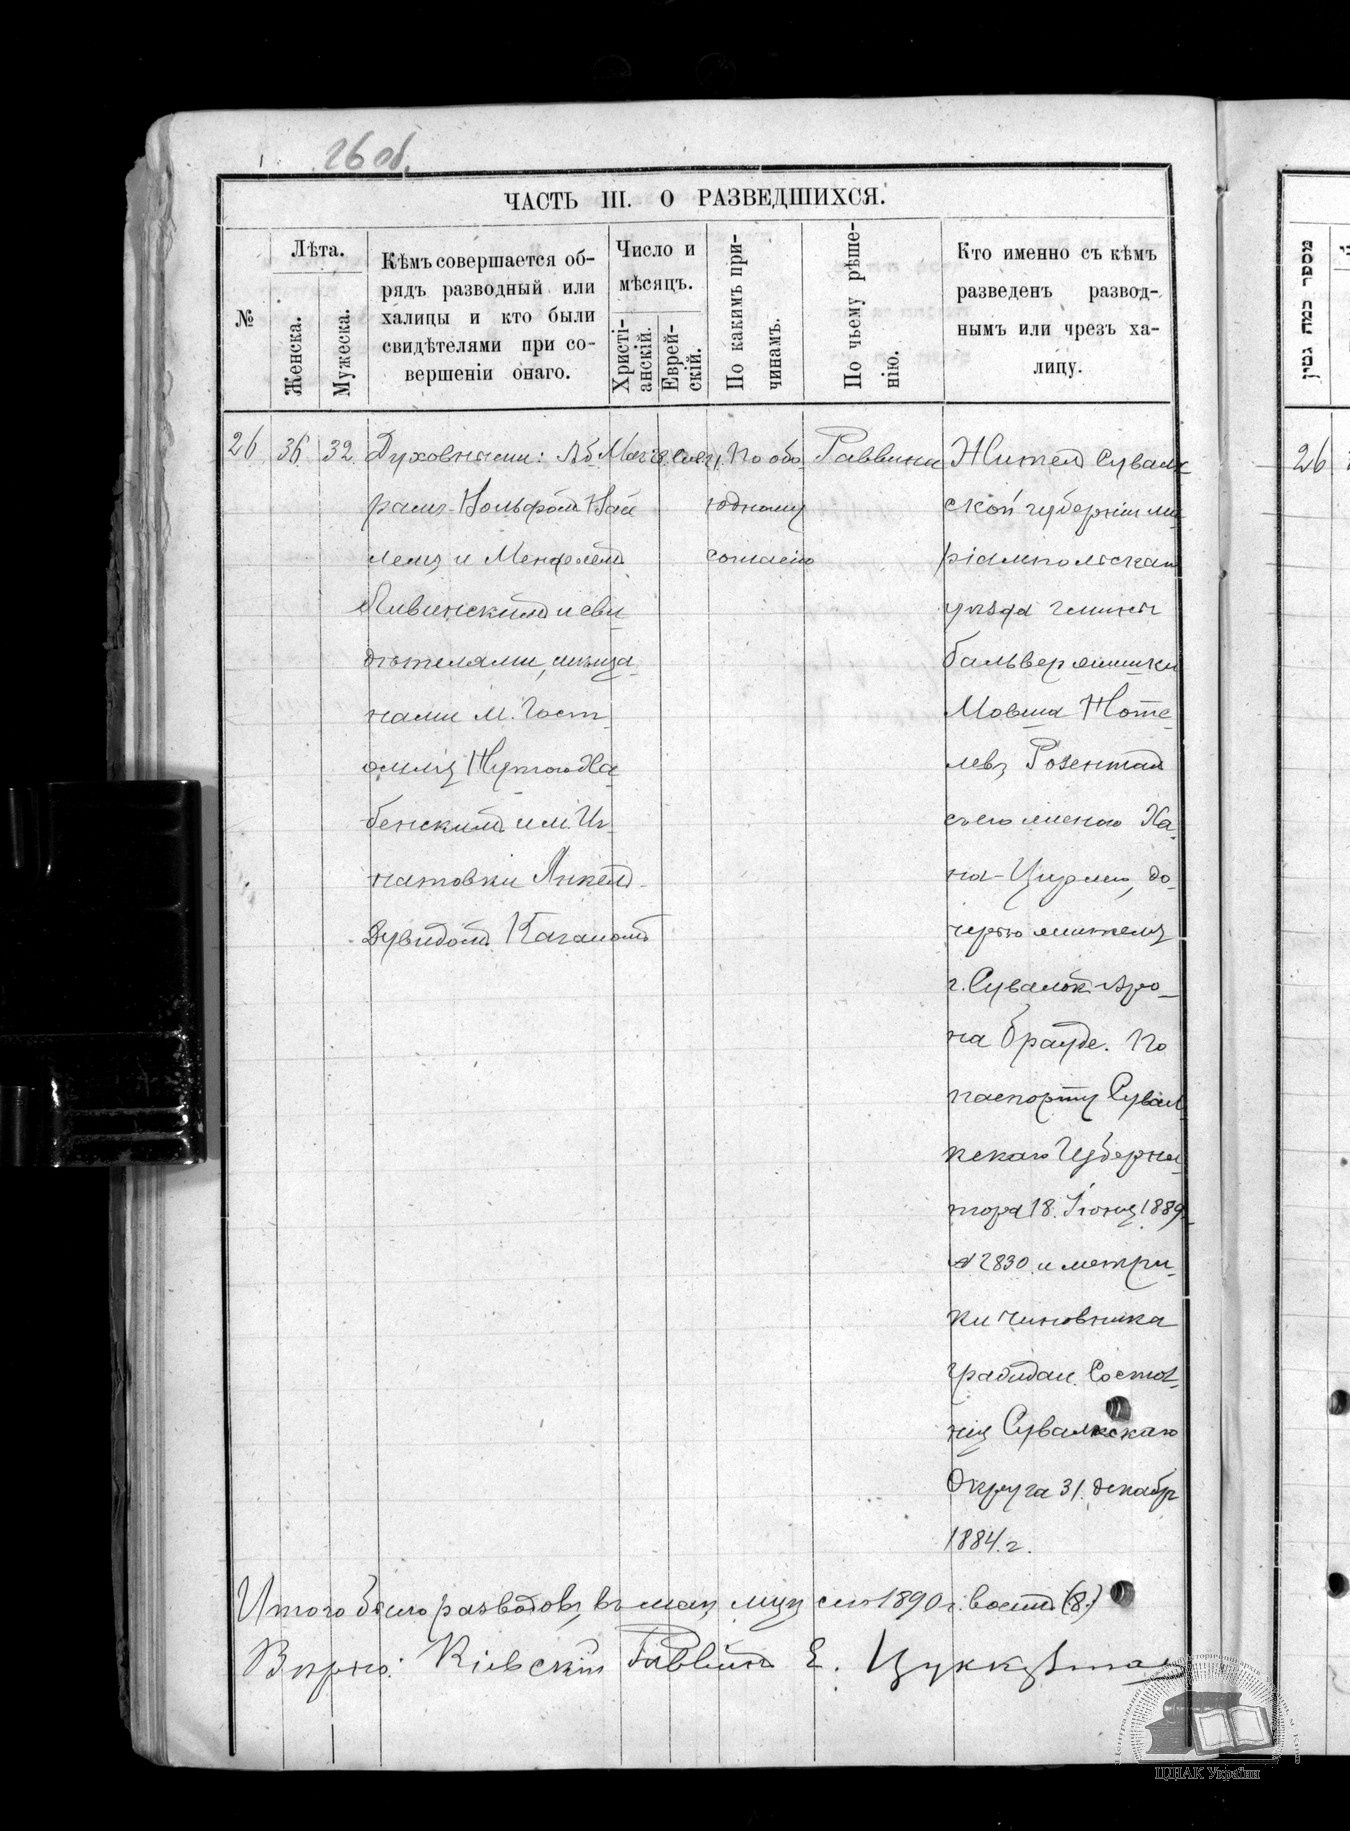 26 об.
ЧАСТЬ III. О РАЗВЕДШИХСЯ.
№
Лѣта.
Женска.
Мужеска.
Кѣмъ совершается об-
рядъ разводный или
халицы и кто были
свидѣтелями при со-
вершеніи онаго.
Число и
мѣсяцъ.
Христі-
анскій.
Еврей-
скій.
По какимъ при-
чинамъ.
По чьему рѣше-
нію.
Кто именно съ кѣмъ
разведенъ развод-
нымъ или чрезъ ха-
лицу.
26
36
32
Духовными: Аб
рамъ-Вольфомъ
и Менделемъ
и сви
дѣтелями, мѣща
нами м. Гост
омля Нутою Ха
бенскимъ и м. Иг
натовки Янкель-
Дувидомъ Каганомъ
По обо
юдному
согласію
Раввина
Жител Сувалк
ской губерніи Ма
ріампольскаго
уѣзда гмины
Бальвержишки
Мовша Ноте
левъ Розенталь
съ его женою Ха
на-Цирлею, до
черью жителя
г. Сувалокъ Аро
на Брауде. По
паспорту Сувал
кскаго Губерна
тора 18. Іюня 1889
№ 2830 и метри
ки чиновника
граждан. Состоя
нія Сувалкскаго
Округа 31. декабр
1884. г.
Итого было разводовъ въ маѣ мцѣ сего 1890 г. восемь (8.)
Вѣрно: Кіевскій Раввинъ Е. Цуккерманъ
26
ЦДІАК України